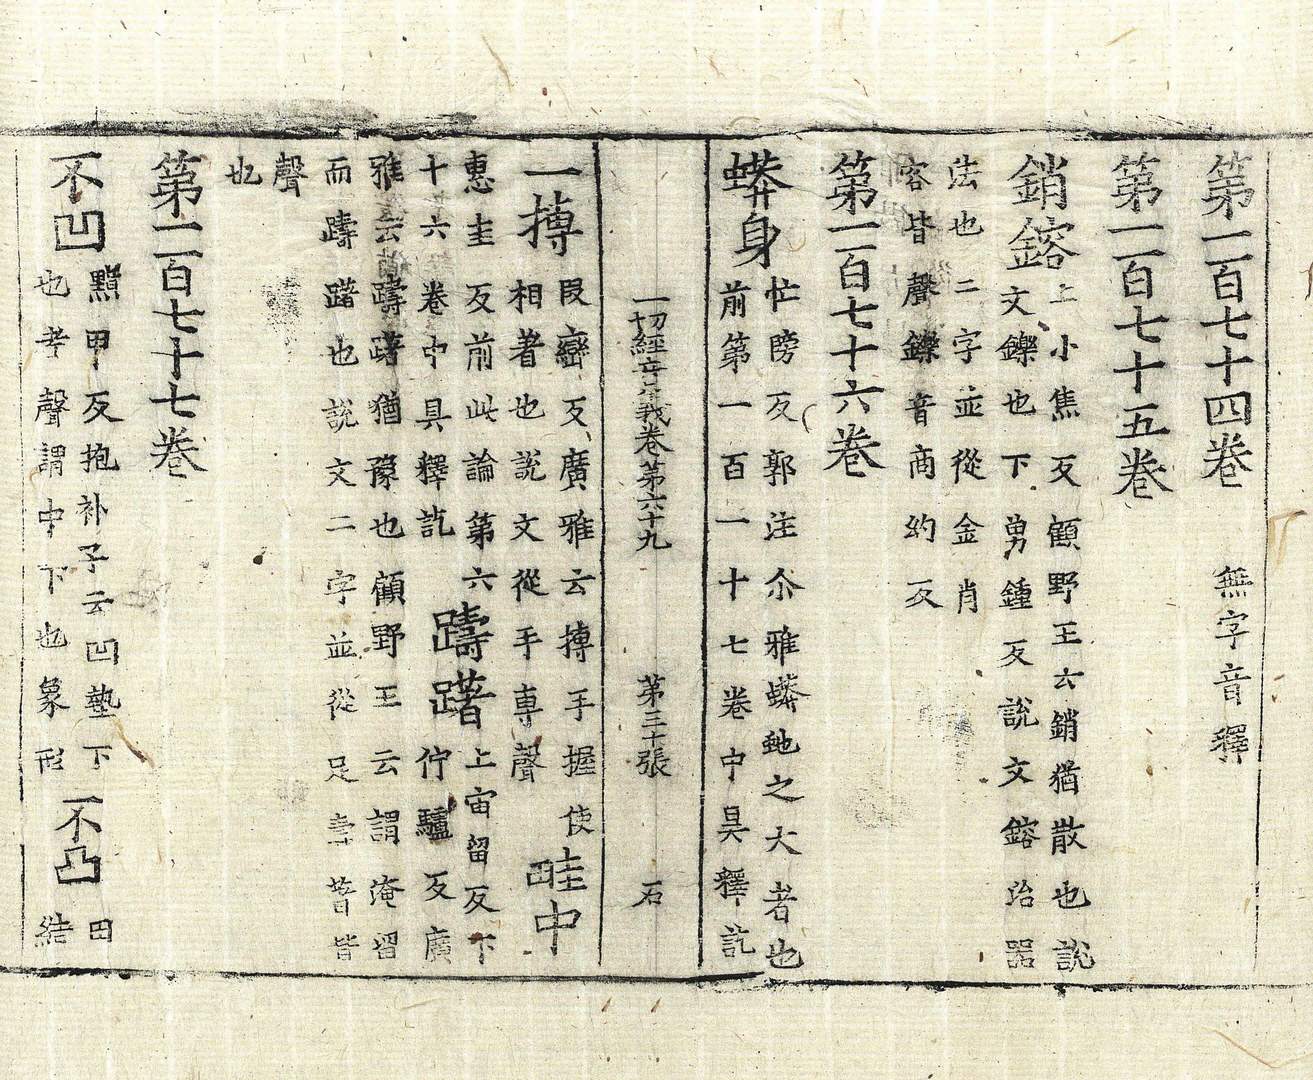 第一百七十四卷 無字音釋
第一百七十五卷
銷鎔
上小焦反顧野王云銷猶散也說
文鑠也下勇鍾反說文鎔冶器
法也二字並從金肖
容皆聲鑠音商約反
第一百七十六卷
蟒身
忙牓反郭注尒雅蟒虵之大者也
前第一百一十七卷中具釋訖
一切經音義卷第六十九 第三十張 石
一摶
段巒反廣雅云摶手握使
相著也說文從手專聲
畦中
惠圭反前此論第六
十六卷中具釋訖
躊躇
上宙留反下
佇驢反廣
雅云躊躇猶豫也顧野王云謂淹留
而躊躇也說文二字並從足壽著皆
聲
也
第一百七十七卷
不凹
黯甲反抱补子云凹墊下
也考聲謂中下也象形
不凸
田
結